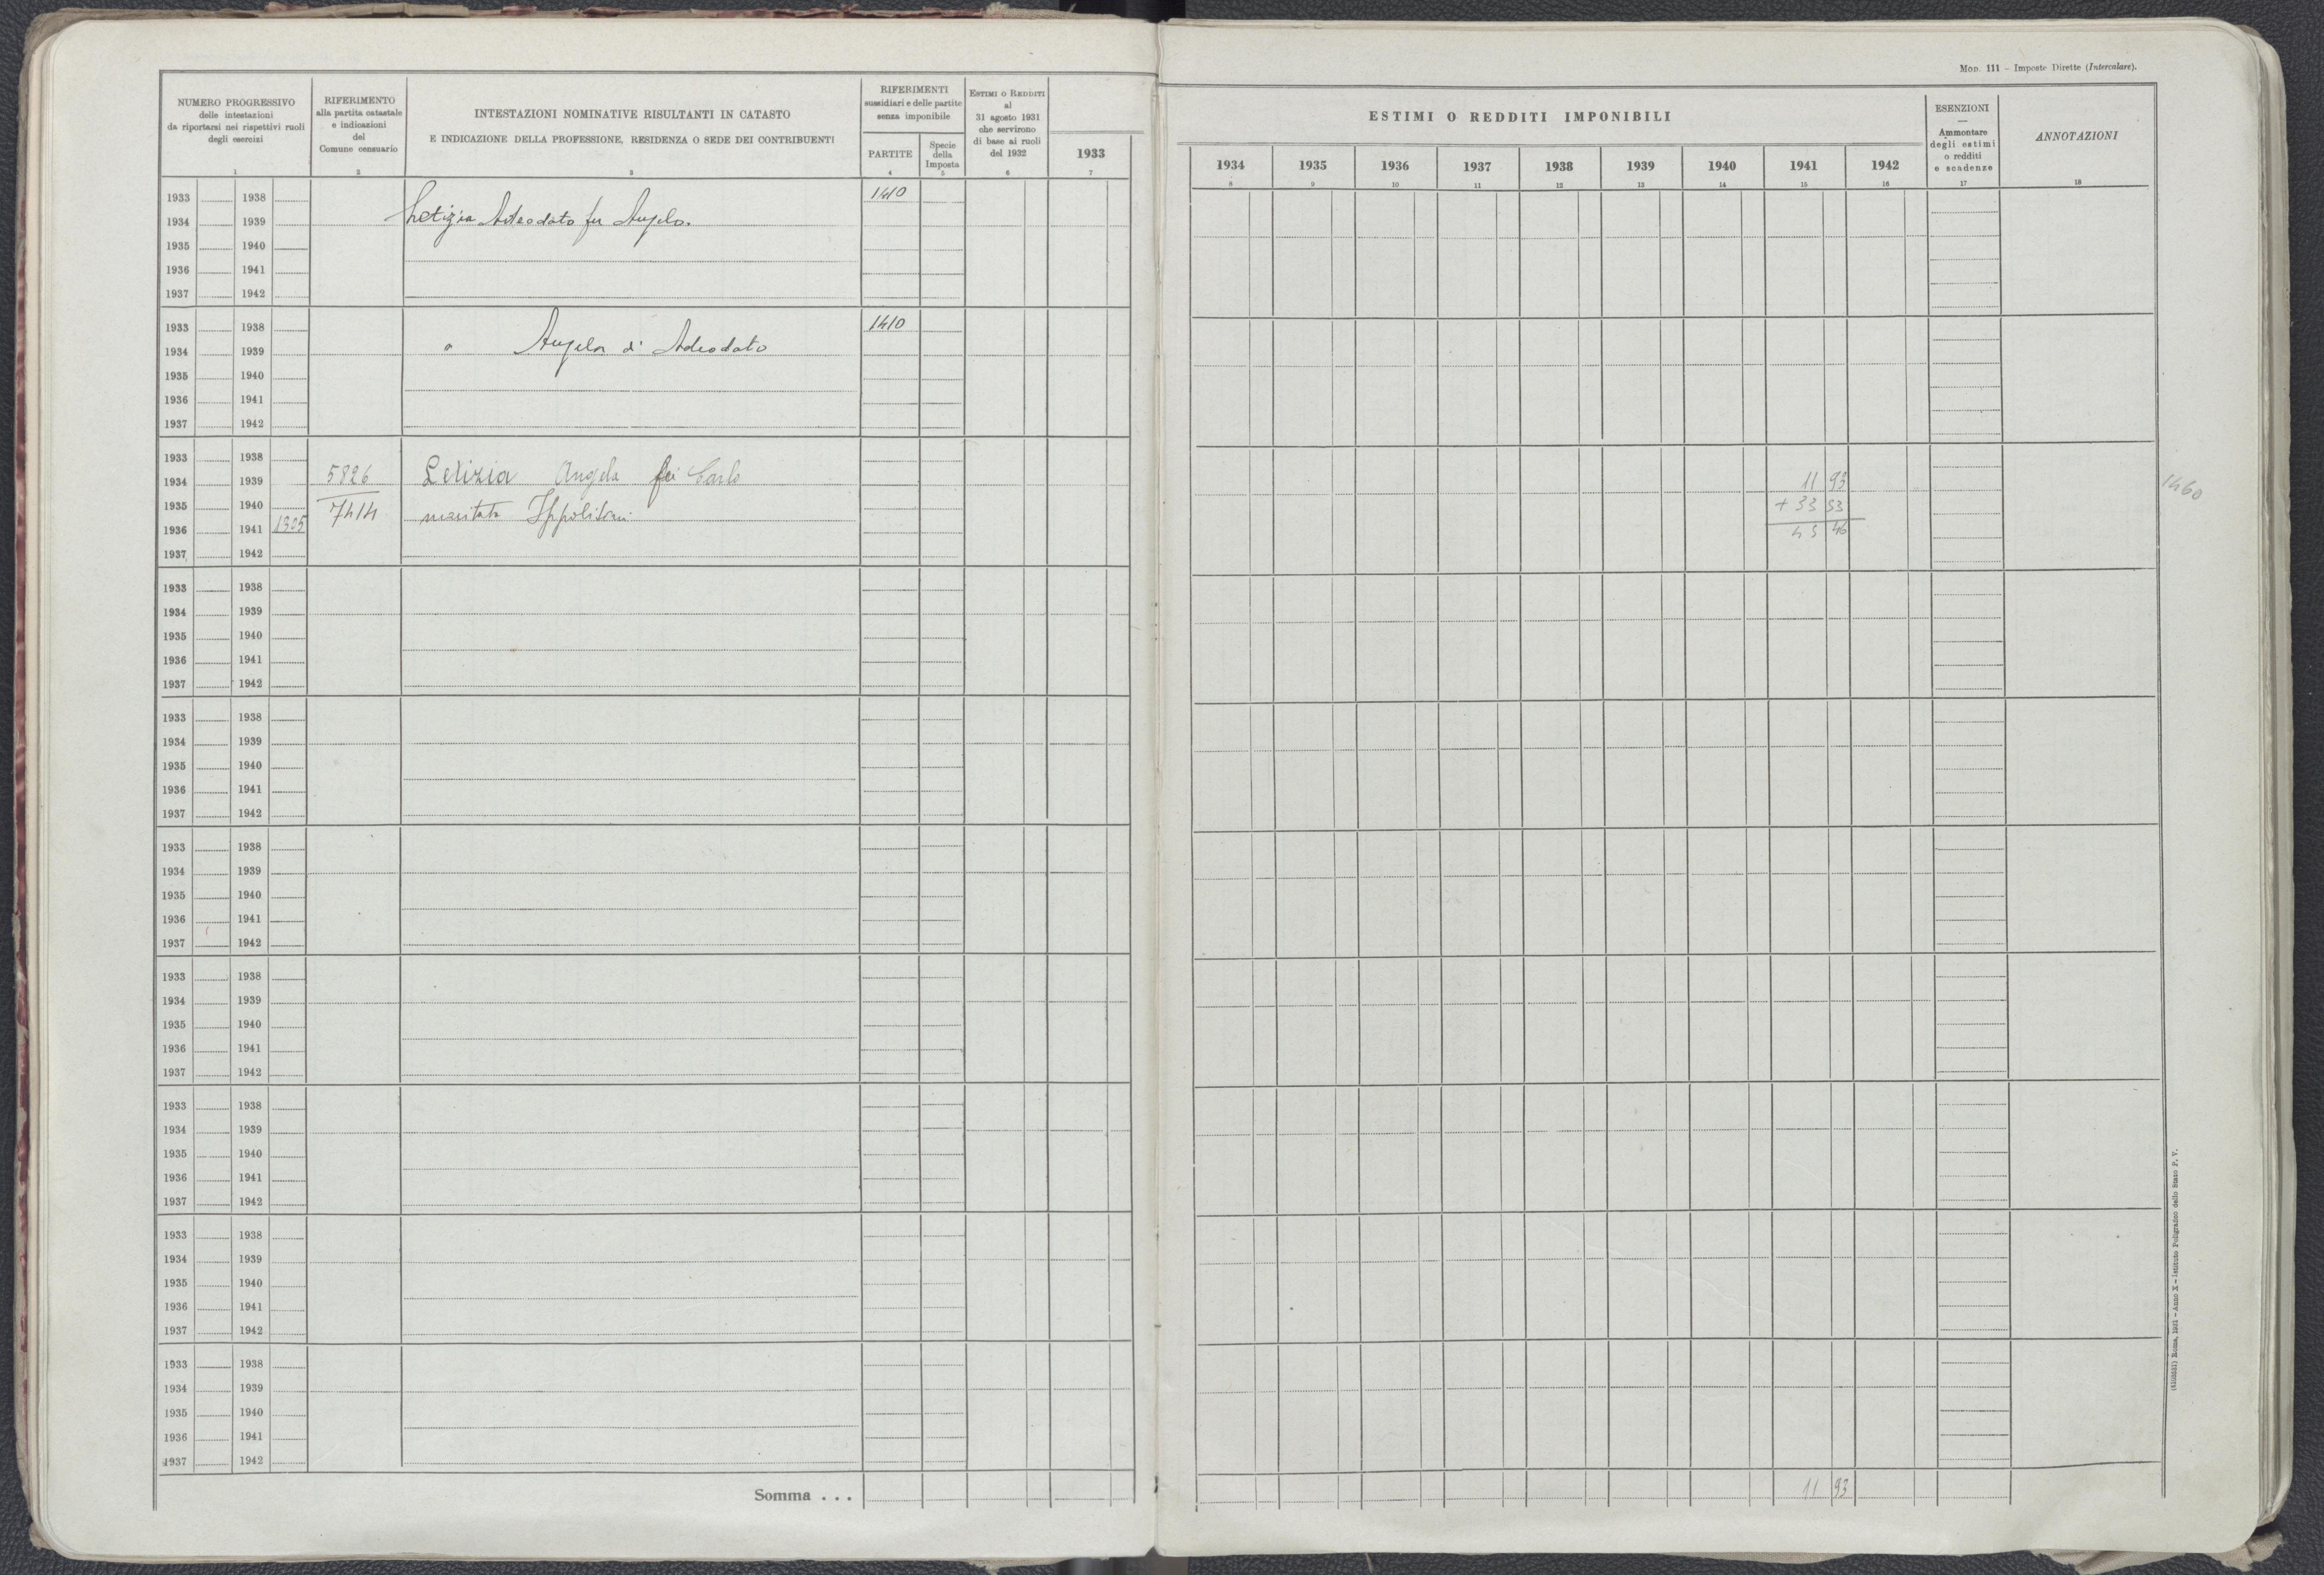 Mod. 111 - Imposte Dirette (Intercalare).
NUMERO PROGRESSIVO
delle intestazioni
da riportarsi nei rispettivi ruoli
degli esercizi
1
RIFERIMENTO
alla partita catastale
e indicazioni
del
Comune censuario
2
INTESTAZIONI NOMINATIVE RISULTANTI IN CATASTO
E INDICAZIONE DELLA PROFESSIONE, RESIDENZA O SEDE DEI CONTRIBUENTI
3
RIFERIMENTI
sussidiari e delle partite
senza imponibile
PARTITE
4
Specie
della
Imposta
5
Estimi o Redditi
al
31 agosto 1931
che servirono
di base ai ruoli
del 1932
6
1933
7
ESTIMI O REDDITI IMPONIBILI
1934 1935 1936 1937 1938 1939 1940 1941 1942
8 9 10 11 12 13 14 15 16
ESENZIONI
—
Ammontare
degli estimi
o redditi
e scadenze
17
ANNOTAZIONI
18
1933 1938 1410
1934 1939 Letizia Adeodato fu Angelo.
1935 1940
1936 1941
1937 1942
1933 1938 1410
1934 1939 " Angela di Adeodato
1935 1940
1936 1941
1937 1942
1933 1938
1934 1939 5826 Letizia Angela fu Carlo 11 93 1460
1935 1940 7414 maritata Ippolitoni + 33 53
1936 1941 1305 45 46
1937 1942
1933 1938
1934 1939
1935 1940
1936 1941
1937 1942
1933 1938
1934 1939
1935 1940
1936 1941
1937 1942
1933 1938
1934 1939
1935 1940
1936 1941
1937 1942
1933 1938
1934 1939
1935 1940
1936 1941
1937 1942
1933 1938
1934 1939
1935 1940
1936 1941
1937 1942
1933 1938
1934 1939
1935 1940
1936 1941
1937 1942
1933 1938
1934 1939
1935 1940
1936 1941
1937 1942
Somma . . . 11 93
Roma, 1931 - Anno X - Istituto Poligrafico dello Stato P. V.